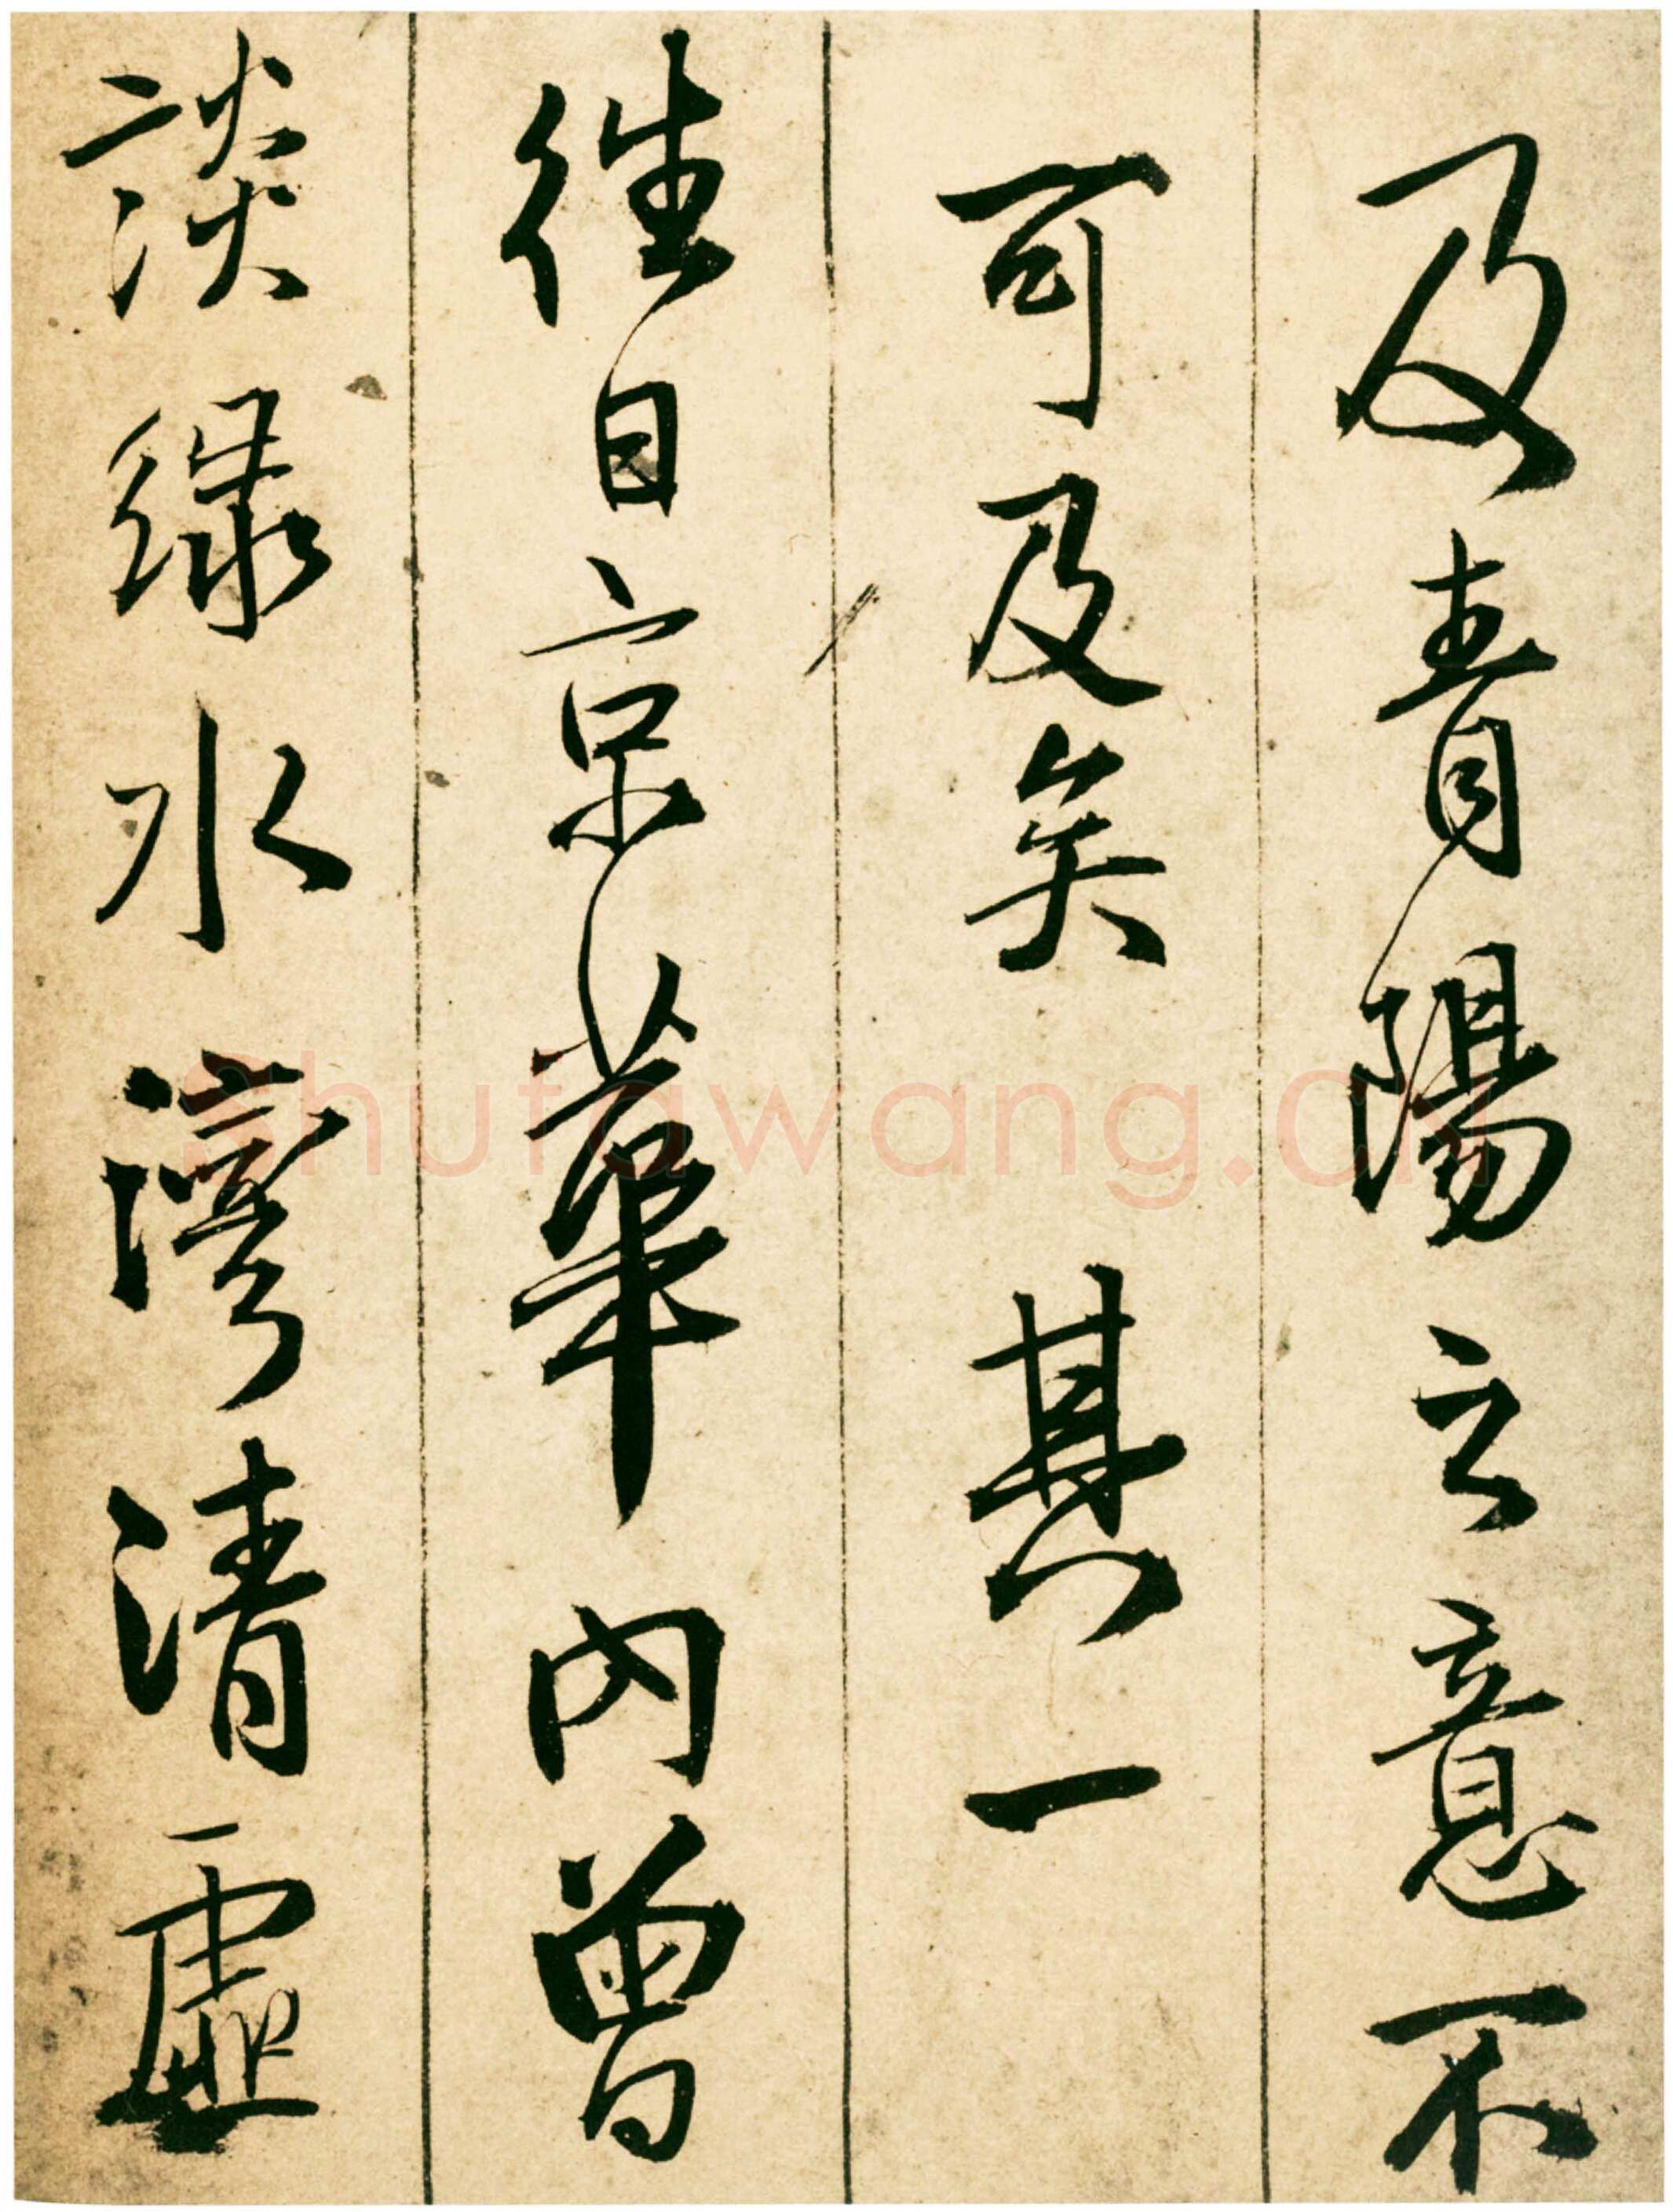 及青陽之意不
可及矣 其一
往日京華內曾
談綠水灣清虛
shufawang.cn